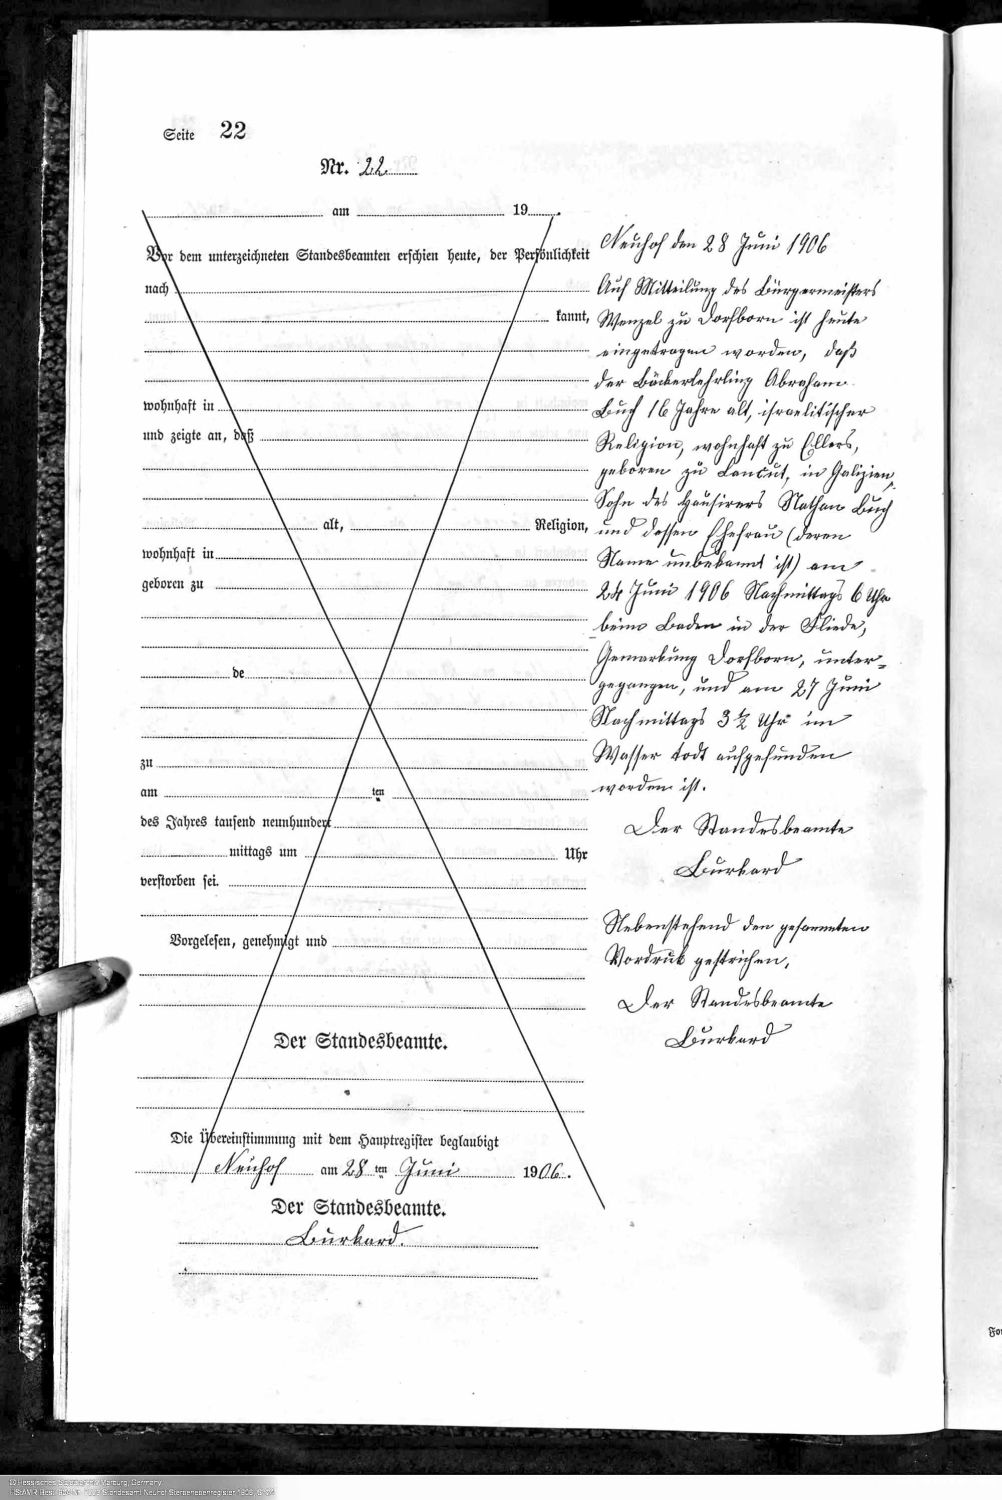 Seite 22
Nr. 22
am 19 .
Vor dem unterzeichneten Standesbeamten erschien heute, der Persönlichkeit
nach
kannt,
wohnhaft in
und zeigte an, daß
alt, Religion,
wohnhaft in
geboren zu
de
zu
am ten
des Jahres tausend neunhundert
mittags um Uhr
verstorben sei.
Vorgelesen, genehmigt und
Der Standesbeamte.
Die Übereinstimmung mit dem Hauptregister beglaubigt
Neuhof am 28 ten Juni 1906.
Der Standesbeamte.
Burkard.
Neuhof den 28 Juni 1906
Auf Mitteilung des Bürgermeisters
Wenzel zu Dorfborn ist heute
eingetragen worden, daß
der Bäckerlehrling Abraham
Buch 16 Jahre alt, israelitischer
Religion, wohnhaft zu Ellers,
geboren zu Lancut, in Galizien,
Sohn des Hausirers Nathan Buch
und dessen Ehefrau (deren
Name unbekannt ist) am
24 Juni 1906 Nachmittags 6 Uhr
beim Baden in der Fliede,
Gemarkung Dorfborn, unter-
gegangen, und am 27 Juni
Nachmittags 3 ½ Uhr im
Wasser todt aufgefunden
worden ist.
Der Standesbeamte
Burkard
Nebenstehend den gesammten
Vordruk gestrichen.
Der Standesbeamte
Burkard